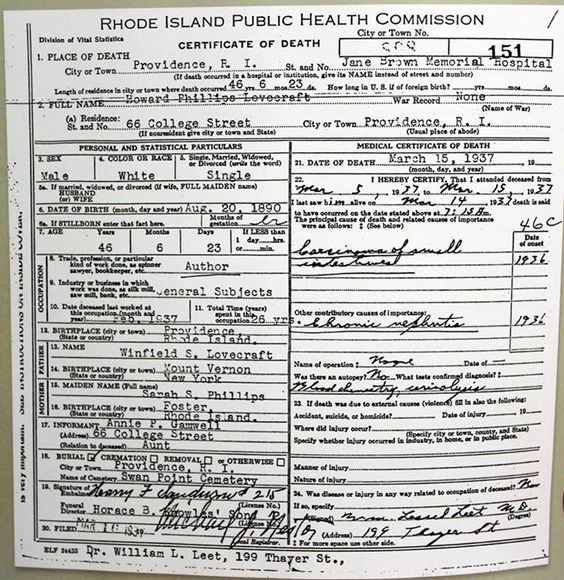 RHODE ISLAND PUBLIC HEALTH COMMISSION
Division of Vital Statistics
CERTIFICATE OF DEATH
City or Town No.
151
1. PLACE OF DEATH
City or Town Providence, R. I. St. and No. Jane Brown Memorial Hospital
(If death occurred in a hospital or institution, give its NAME instead of street and number)
Length of residence in city or town where death occurred 46 yrs. 6 mos. 23 ds. How long in U. S. if of foreign birth? yrs. mos. ds.
2. FULL NAME Howard Phillips Lovecraft War Record None
(Name of War)
(a) Residence: St. and No. 66 College Street City or Town Providence, R. I.
(If nonresident give city or town and State) (Usual place of abode)
PERSONAL AND STATISTICAL PARTICULARS
3. SEX 4. COLOR OR RACE 5. Single, Married, Widowed, or Divorced (write the word)
Male White Single
5a. If married, widowed, or divorced (if wife, FULL MAIDEN name)
HUSBAND
(or) WIFE
6. DATE OF BIRTH (month, day and year) Aug. 20, 1890
6a. If STILLBORN enter that fact here. Months of gestation
7. AGE Years Months Days If LESS than 1 day hrs. or min.
46 6 23
OCCUPATION
8. Trade, profession, or particular kind of work done, as spinner sawyer, bookkeeper, etc.
Author
9. Industry or business in which work was done, as silk mill, saw mill, bank, etc. General Subjects
10. Date deceased last worked at this occupation (month and year) Feb. 1937
11. Total Time (years) spent in this occupation 26 yrs.
12. BIRTHPLACE (city or town) Providence
(State or country) Rhode Island.
FATHER
13. NAME
Winfield S. Lovecraft
14. BIRTHPLACE (city or town) Mount Vernon
(State or country) New York
MOTHER
15. MAIDEN NAME (Full name)
Sarah S. Phillips
16. BIRTHPLACE (city or town) Foster,
(State or country) Rhode Island.
17. INFORMANT Annie P. Gamwell
(Address) 66 College Street
(Relation to deceased) Aunt
18. BURIAL CREMATION REMOVAL or OTHERWISE
City or Town Providence, R. I.
Name of Cemetery Swan Point Cemetery
19. Signature of Embalmer Harry F. 215
(License No.)
Funeral Director Horace B. Knowles' Sons
(License No.)
20. FILED
Local Registrar.
MEDICAL CERTIFICATE OF DEATH
21. DATE OF DEATH March 15, 1937 19
(month, day, and year)
22. I HEREBY CERTIFY, That I attended deceased from
Mar 5, 1937, to Mar 15, 1937
I last saw him alive on Mar 14 1937 death is said
to have occurred on the date stated above at 7:15 A m.
The principal cause of death and related causes of importance
were as follows: ‡ (See below)
46C
Date of onset
Carcinoma of small intestines 1936
Other contributory causes of importance:
Chronic nephritis 1936
Name of operation None Date of
Was there an autopsy? No What tests confirmed diagnosis?
Blood chemistry, urinalysis
23. If death was due to external causes (violence) fill in also the following:
Accident, suicide, or homicide? Date of injury 19
Where did injury occur?
(Specify city or town, county, and State)
Specify whether injury occurred in industry, in home, or in public place.
Manner of injury
Nature of injury
24. Was disease or injury in any way related to occupation of deceased? No
If so, specify
(Signed) M. D.
(Degree)
(Address) 199 Thayer St
‡ For more space use other side.
ELF 24433 Dr. William L. Leet, 199 Thayer St.,